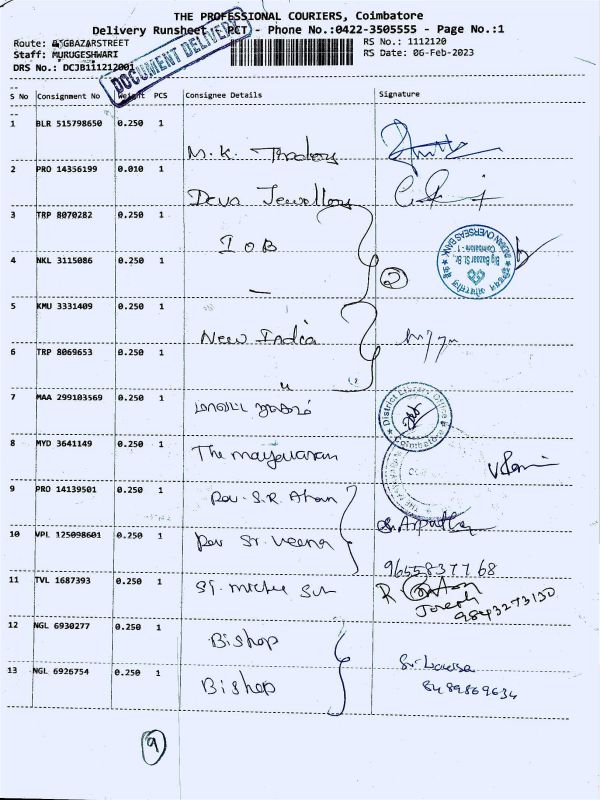 THE PROFESSIONAL COURIERS, Coimbatore
Delivery Runsheet PCT - Phone No.:0422-3505555 - Page No.:1
Route: BIGBAZARSTREET RS No.: 1112120
Staff: MURUGESHWARI RS Date: 06-Feb-2023
DRS No.: DCJB111212001
DOCUMENT DELIVERY
S No Consignment No Weight PCS Consignee Details Signature
1 BLR 515798650 0.250 1
M.K. Thooley
2 PRO 14356199 0.010 1
Deva Jewellery
3 TRP 8070282 0.250 1
IOB
INDIAN OVERSEAS BANK
Big Bazaar St. Br.
Coimbatore - 1
4 NKL 3115086 0.250 1
2
5 KMU 3331409 0.250 1
New India
6 TRP 8069653 0.250 1
"
7 MAA 299103569 0.250 1
மாவட்ட நூலகம்
District Library Office
Coimbatore
8 MYD 3641149 0.250 1
The mayavaram
9 PRO 14139501 0.250 1
Rev. S.R Ahan
10 VPL 125098601 0.250 1
Rev Sr. Veena
9655837768
11 TVL 1687393 0.250 1
Joseph
9843273150
12 NGL 6930277 0.250 1
Bishop
13 NGL 6926754 0.250 1
Bishop
8489869634
9